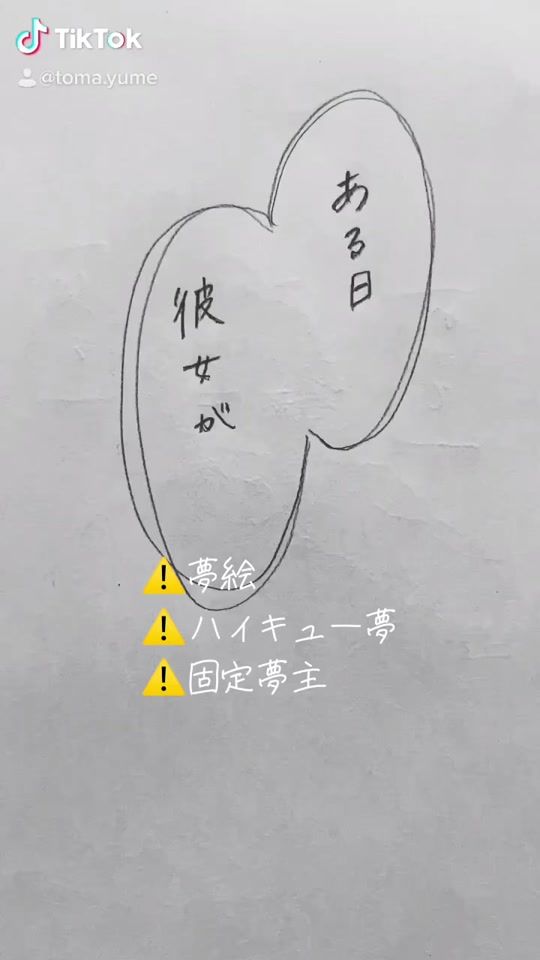 TikTok
@toma.yume
ある日
彼女が
⚠️夢絵
⚠️ハイキュー夢
⚠️固定夢主